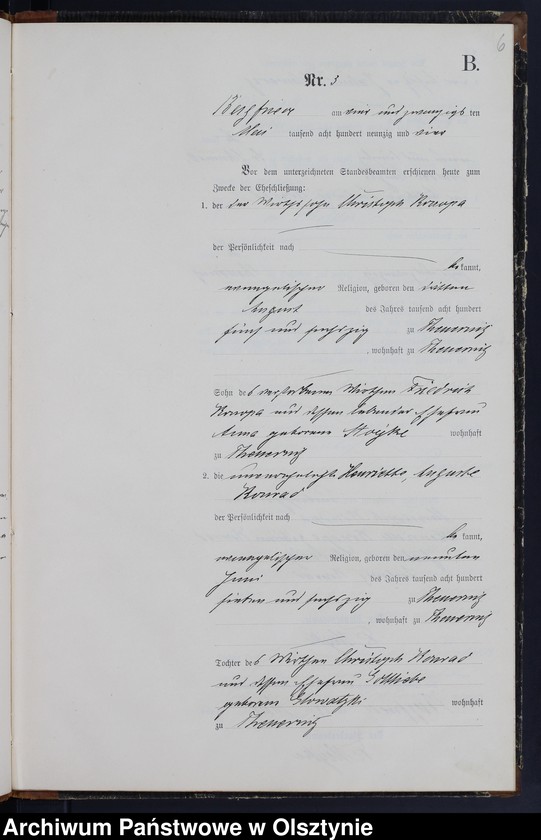 6
B.
Nr. 3
Bergfriede am vier und zwanzigs ten
Mai tausend acht hundert neunzig und vier
Vor dem unterzeichneten Standesbeamten erschienen heute zum
Zwecke der Eheschließung:
1. der der Wirthssohn Christoph Konopa
der Persönlichkeit nach
be kannt,
evangelischer Religion, geboren den dritten
August des Jahrs tausend acht hundert
fünf und sechszig zu Theuernitz
, wohnhaft zu Theuernitz
Sohn des verstorbenen Wirthen Friedrich
Konopa und dessen lebender Ehefrau
Anna geborene wohnhaft
zu Theuernitz
2. die unverehelichte Henriette, Auguste
Konrad
der Persönlichkeit nach
be kannt,
evangelischer Religion, geboren den neunten
Juni des Jahres tausend acht hundert
sieben und sechszig zu Theuernitz
, wohnhaft zu Theuernitz
Tochter des Wirthen Christoph Konrad
und dessen Ehefrau Gottliebe
geborene Glowatzki wohnhaft
zu Theuernitz
Archiwum Państwowe w Olsztynie